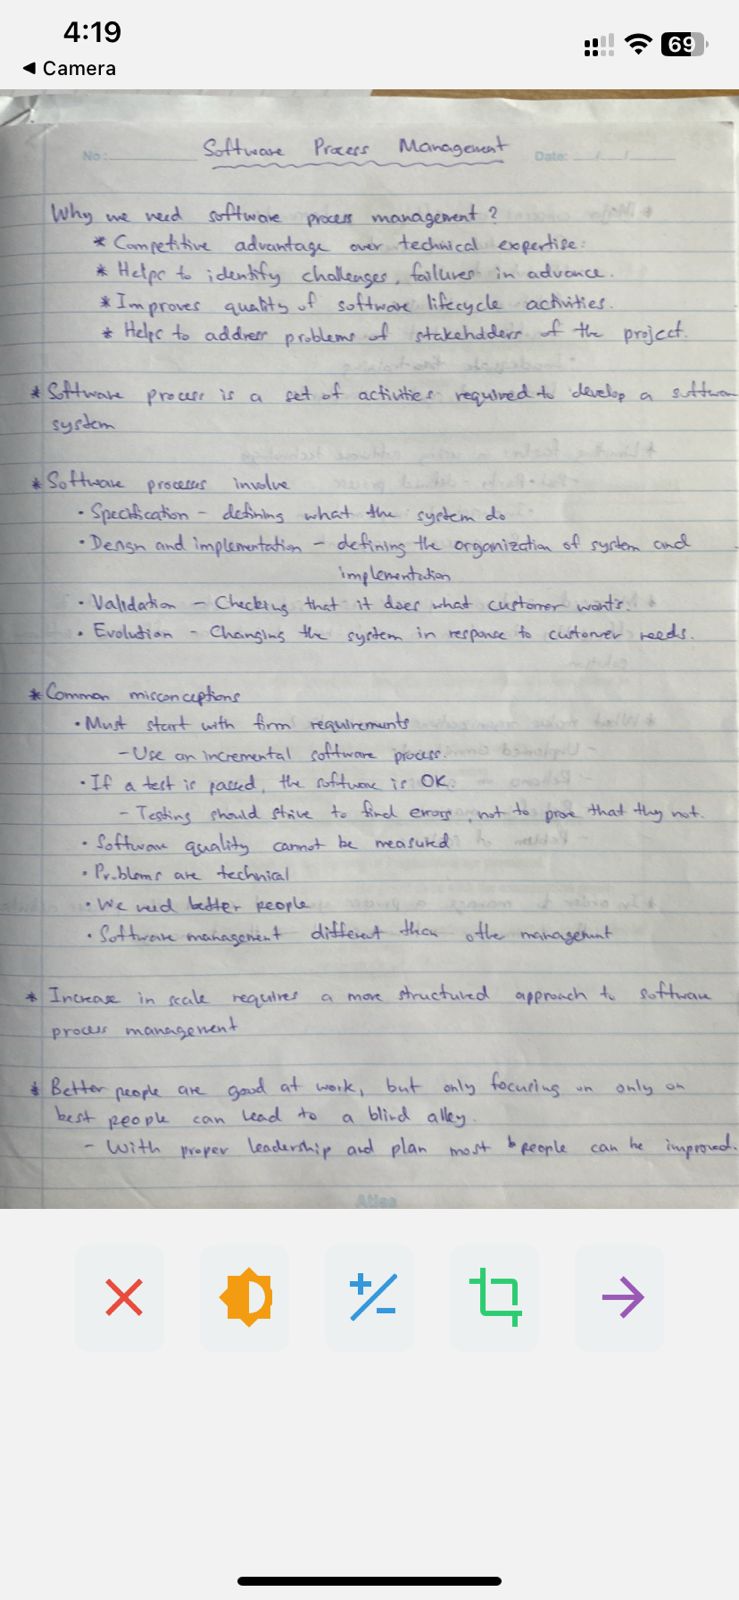 4:19
69
◀ Camera
No:
Software Process Management
Date: / /
Why we need software process management?
* Competitive advantage over technical expertise.
* Helps to identify challenges, failures in advance.
* Improves quality of software lifecycle activities.
* Helps to address problems of stakeholders of the project.
* Software process is a set of activities required to develop a software
system
* Software processes involve
· Specification - defining what the system do
· Design and implementation - defining the organization of system and
implementation
· Validation - Checking that it does what customer wants.
· Evolution - Changing the system in response to customer needs.
* Common misconceptions
· Must start with firm requirements
- Use an incremental software process.
· If a test is passed, the software is OK.
- Testing should strive to find errors, not to prove that they not.
· Software quality cannot be measured
· Problems are technical
· We need better people
· Software management different than othe management
* Increase in scale requires a more structured approach to software
process management
* Better people are good at work, but only focusing on only on
best people can lead to a blind alley.
- With proper leadership and plan most people can be improved.
Atlas